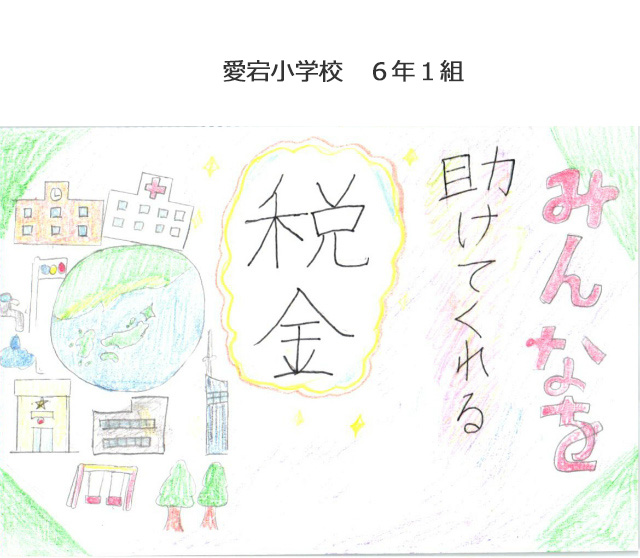 愛宕小学校　６年１組
みんなを
助けてくれる
税金